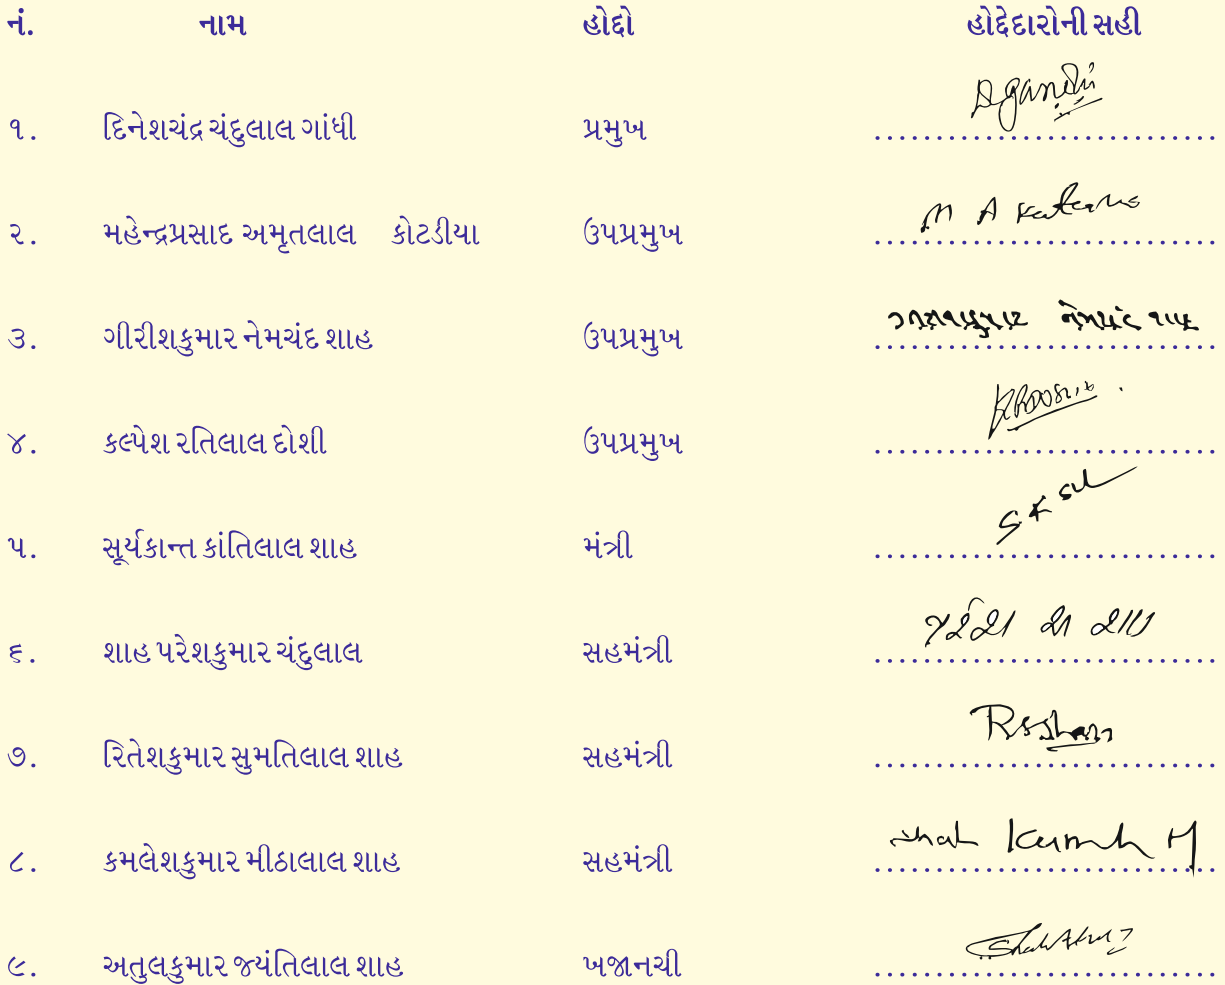 નં. નામ હોદ્દો હોદ્દેદારોની સહી
૧. દિનેશચંદ્ર ચંદુલાલ ગાંધી પ્રમુખ Dgandhi
૨. મહેન્દ્રપ્રસાદ અમૃતલાલ કોટડીયા ઉપપ્રમુખ M A
૩. ગીરીશકુમાર નેમચંદ શાહ ઉપપ્રમુખ નેમચંદ શાહ
૪. કલ્પેશ રતિલાલ દોશી ઉપપ્રમુખ
૫. સૂર્યકાન્ત કાંતિલાલ શાહ મંત્રી S K
૬. શાહ પરેશકુમાર ચંદુલાલ સહમંત્રી
૭. રિતેશકુમાર સુમતિલાલ શાહ સહમંત્રી
૮. કમલેશકુમાર મીઠાલાલ શાહ સહમંત્રી Shah
૯. અતુલકુમાર જ્યંતિલાલ શાહ ખજાનચી